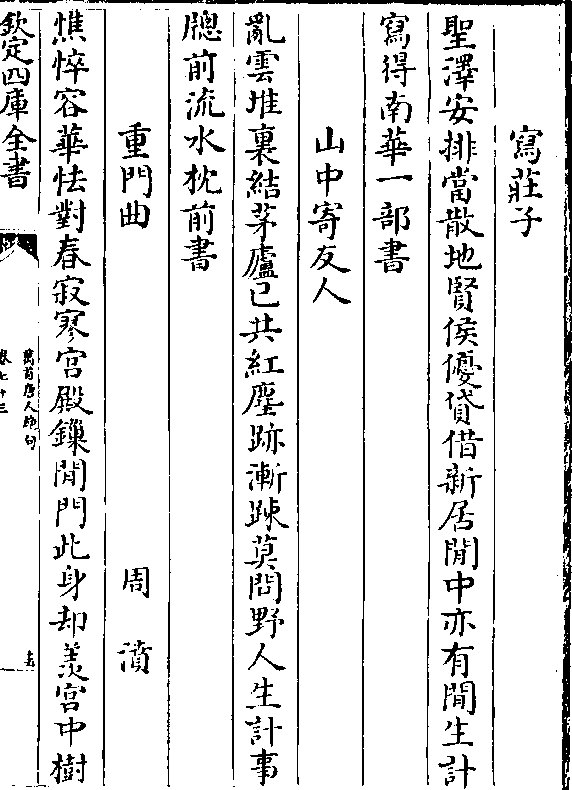 寫莊子
聖澤安排當散地賢侯優貸借新居閒中亦有閒生計
寫得南華一部書
山中寄友人
亂雲堆裏結茅廬已共紅塵跡漸疎莫問野人生計事
牕前流水枕前書
重門曲 周濆
憔悴容華怯對春寂寥宮殿鏁閒門此身却羡宮中樹
欽定四庫全書
萬首唐人絶句
卷七十三